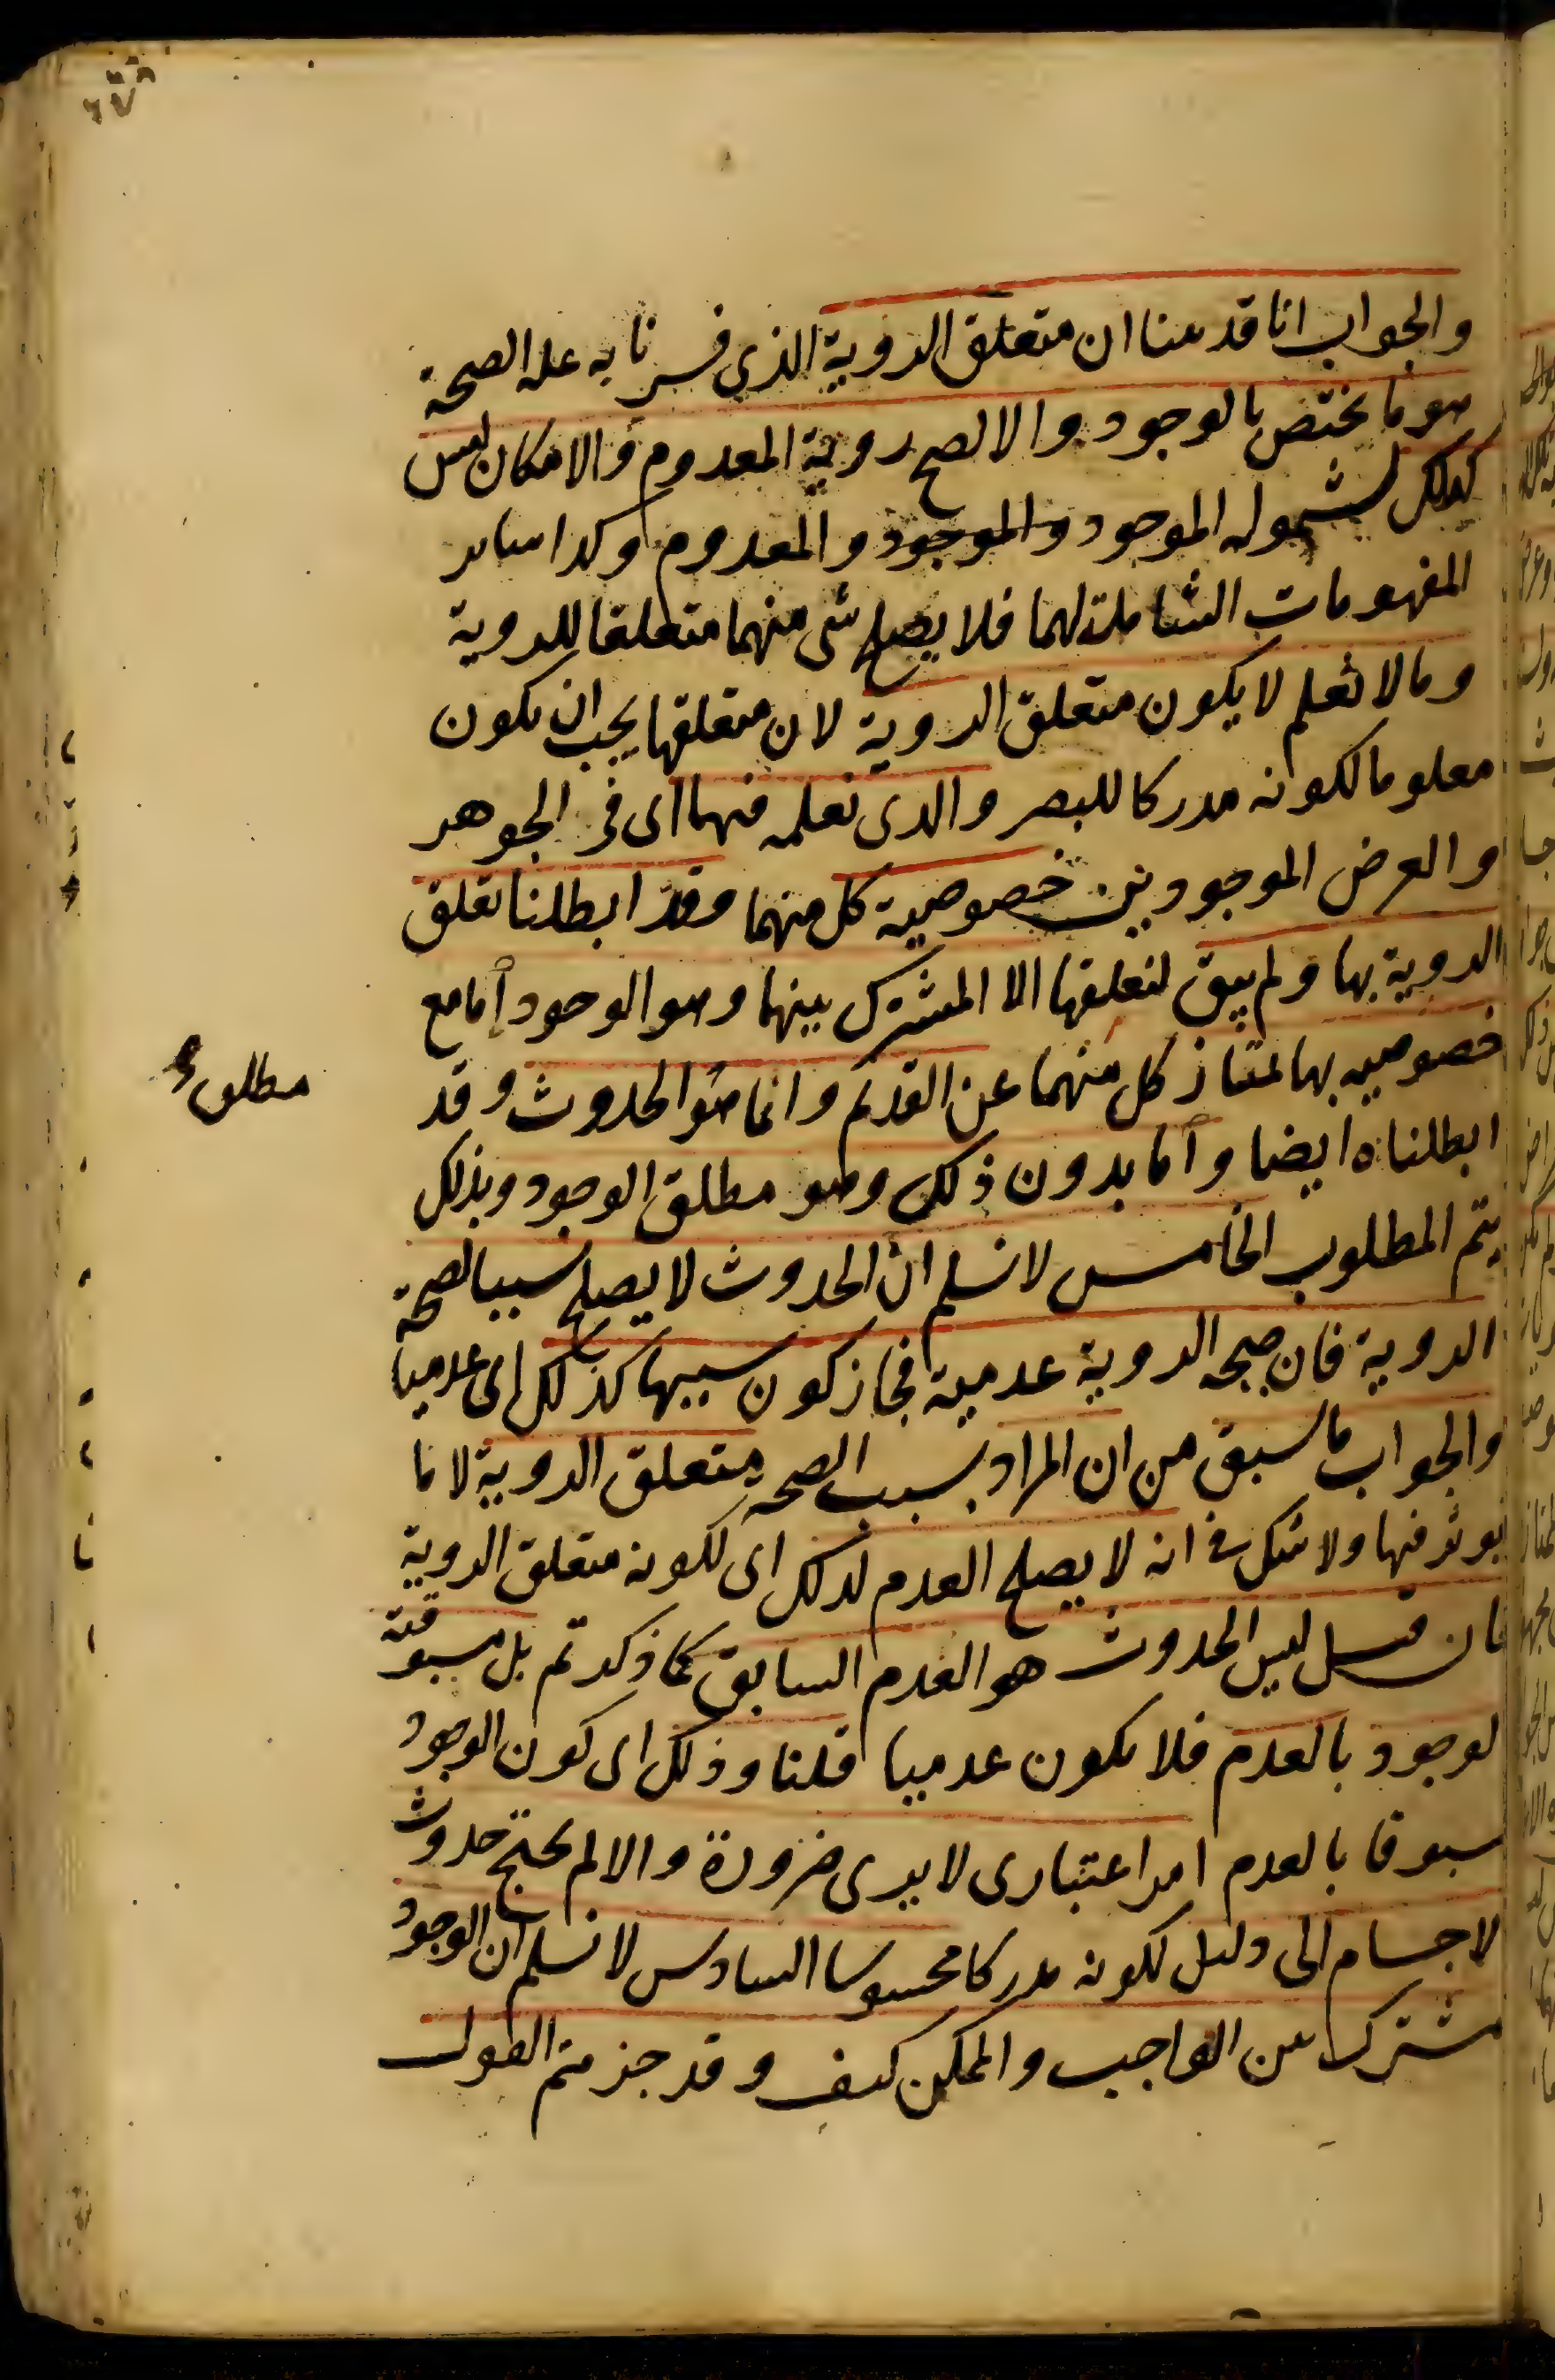 والجواب انا قد بينا ان متعلق الروية الذي فسرنا به علة الصحة
هو ما يختص بالوجود والا لصح روية المعدوم والامكان ليس
كذلك لشموله الموجود والموجود والمعدوم وكذا ساير
المفهومات الشاملة لهما فلا يصلح شى منهما متعلقا للروية
وما لا نعلم لا يكون متعلق الروية لان متعلقها يجب ان يكون
معلوما لكونه مدركا للبصر والذى نعلمه فيهما اى فى الجوهر
والعرض الموجودين خصوصية كل منهما وقد ابطلنا تعلق
الروية بها ولم يبق لتعلقها الا المشترك بينهما وهو الوجود اما مع
خصوصيه بها يمتاز كل منهما عن القديم وانما هو الحدوث وقد
ابطلناه ايضا واما بدون ذلك وهو مطلق الوجود وبذلك
يتم المطلوب الخامس لا نسلم ان الحدوث لا يصلح سببا لصحة
الروية فان صحه الروية عدمية فجاز كون سببها كذلك اى عدميا
والجواب ما سبق من ان المراد بسبب الصحة متعلق الروية لا ما
يوثر فيها ولا شك فى انه لا يصلح العدم لذلك اى لكونه متعلق الروية
فان قيل ليس الحدوث هو العدم السابق كما ذكرتم بل مسبوقية
الوجود بالعدم فلا يكون عدميا قلنا وذلك اى كون الوجود
مسبوقا بالعدم امر اعتبارى لا يرى ضرورة والا لم يحتج حدوث
الاجسام الى دليل لكونه مدركا محسوسا السادس لا نسلم ان الوجود
مشترك بين الواجب والممكن كيف وقد جزمتم القول
مطلوب